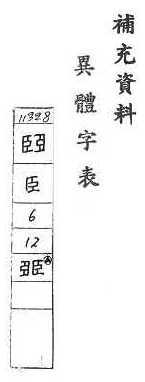 補充資料
異體字表
11328
臣
6
12